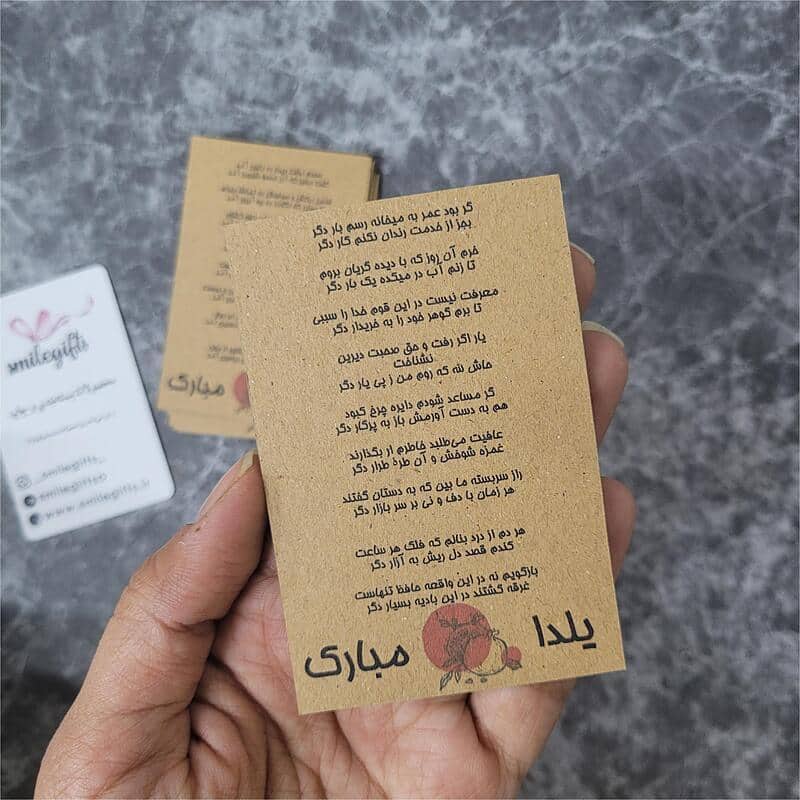 گر بود عمر به میخانه رسم بار دگر
بجز از خدمت رندان نکنم کار دگر
خرم آن روز که با دیده گریان بروم
تا زنم آب در میکده یک بار دگر
معرفت نیست در این قوم خدا را سببی
تا برم گوهر خود را به خریدار دگر
یار اگر رفت و حق صحبت دیرین
نشناخت
حاش لله که روم من ز پی یار دگر
گر مساعد شودم دایره چرخ کبود
هم به دست آورمش باز به پرگار دگر
عافیت می‌طلبد خاطرم ار بگذارند
غمزه شوخش و آن طره طرار دگر
راز سربسته ما بین که به دستان گفتند
هر زمان با دف و نی بر سر بازار دگر
هر دم از درد بنالم که فلک هر ساعت
کندم قصد دل ریش به آزار دگر
بازگویم نه در این واقعه حافظ تنهاست
غرقه گشتند در این بادیه بسیار دگر
یلدا مبارک
مبارک
smilegifts
_smilegifts_
smilegifts
www.smilegifts.ir